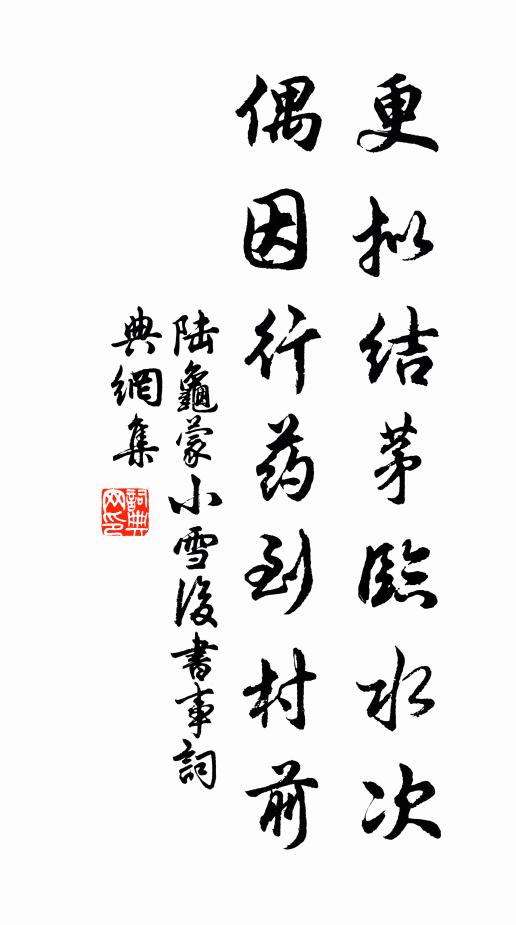 更拟结茅臨水次
偶因行药到村前
陆龜蒙小雪後書事詞
典網集
詞典网印